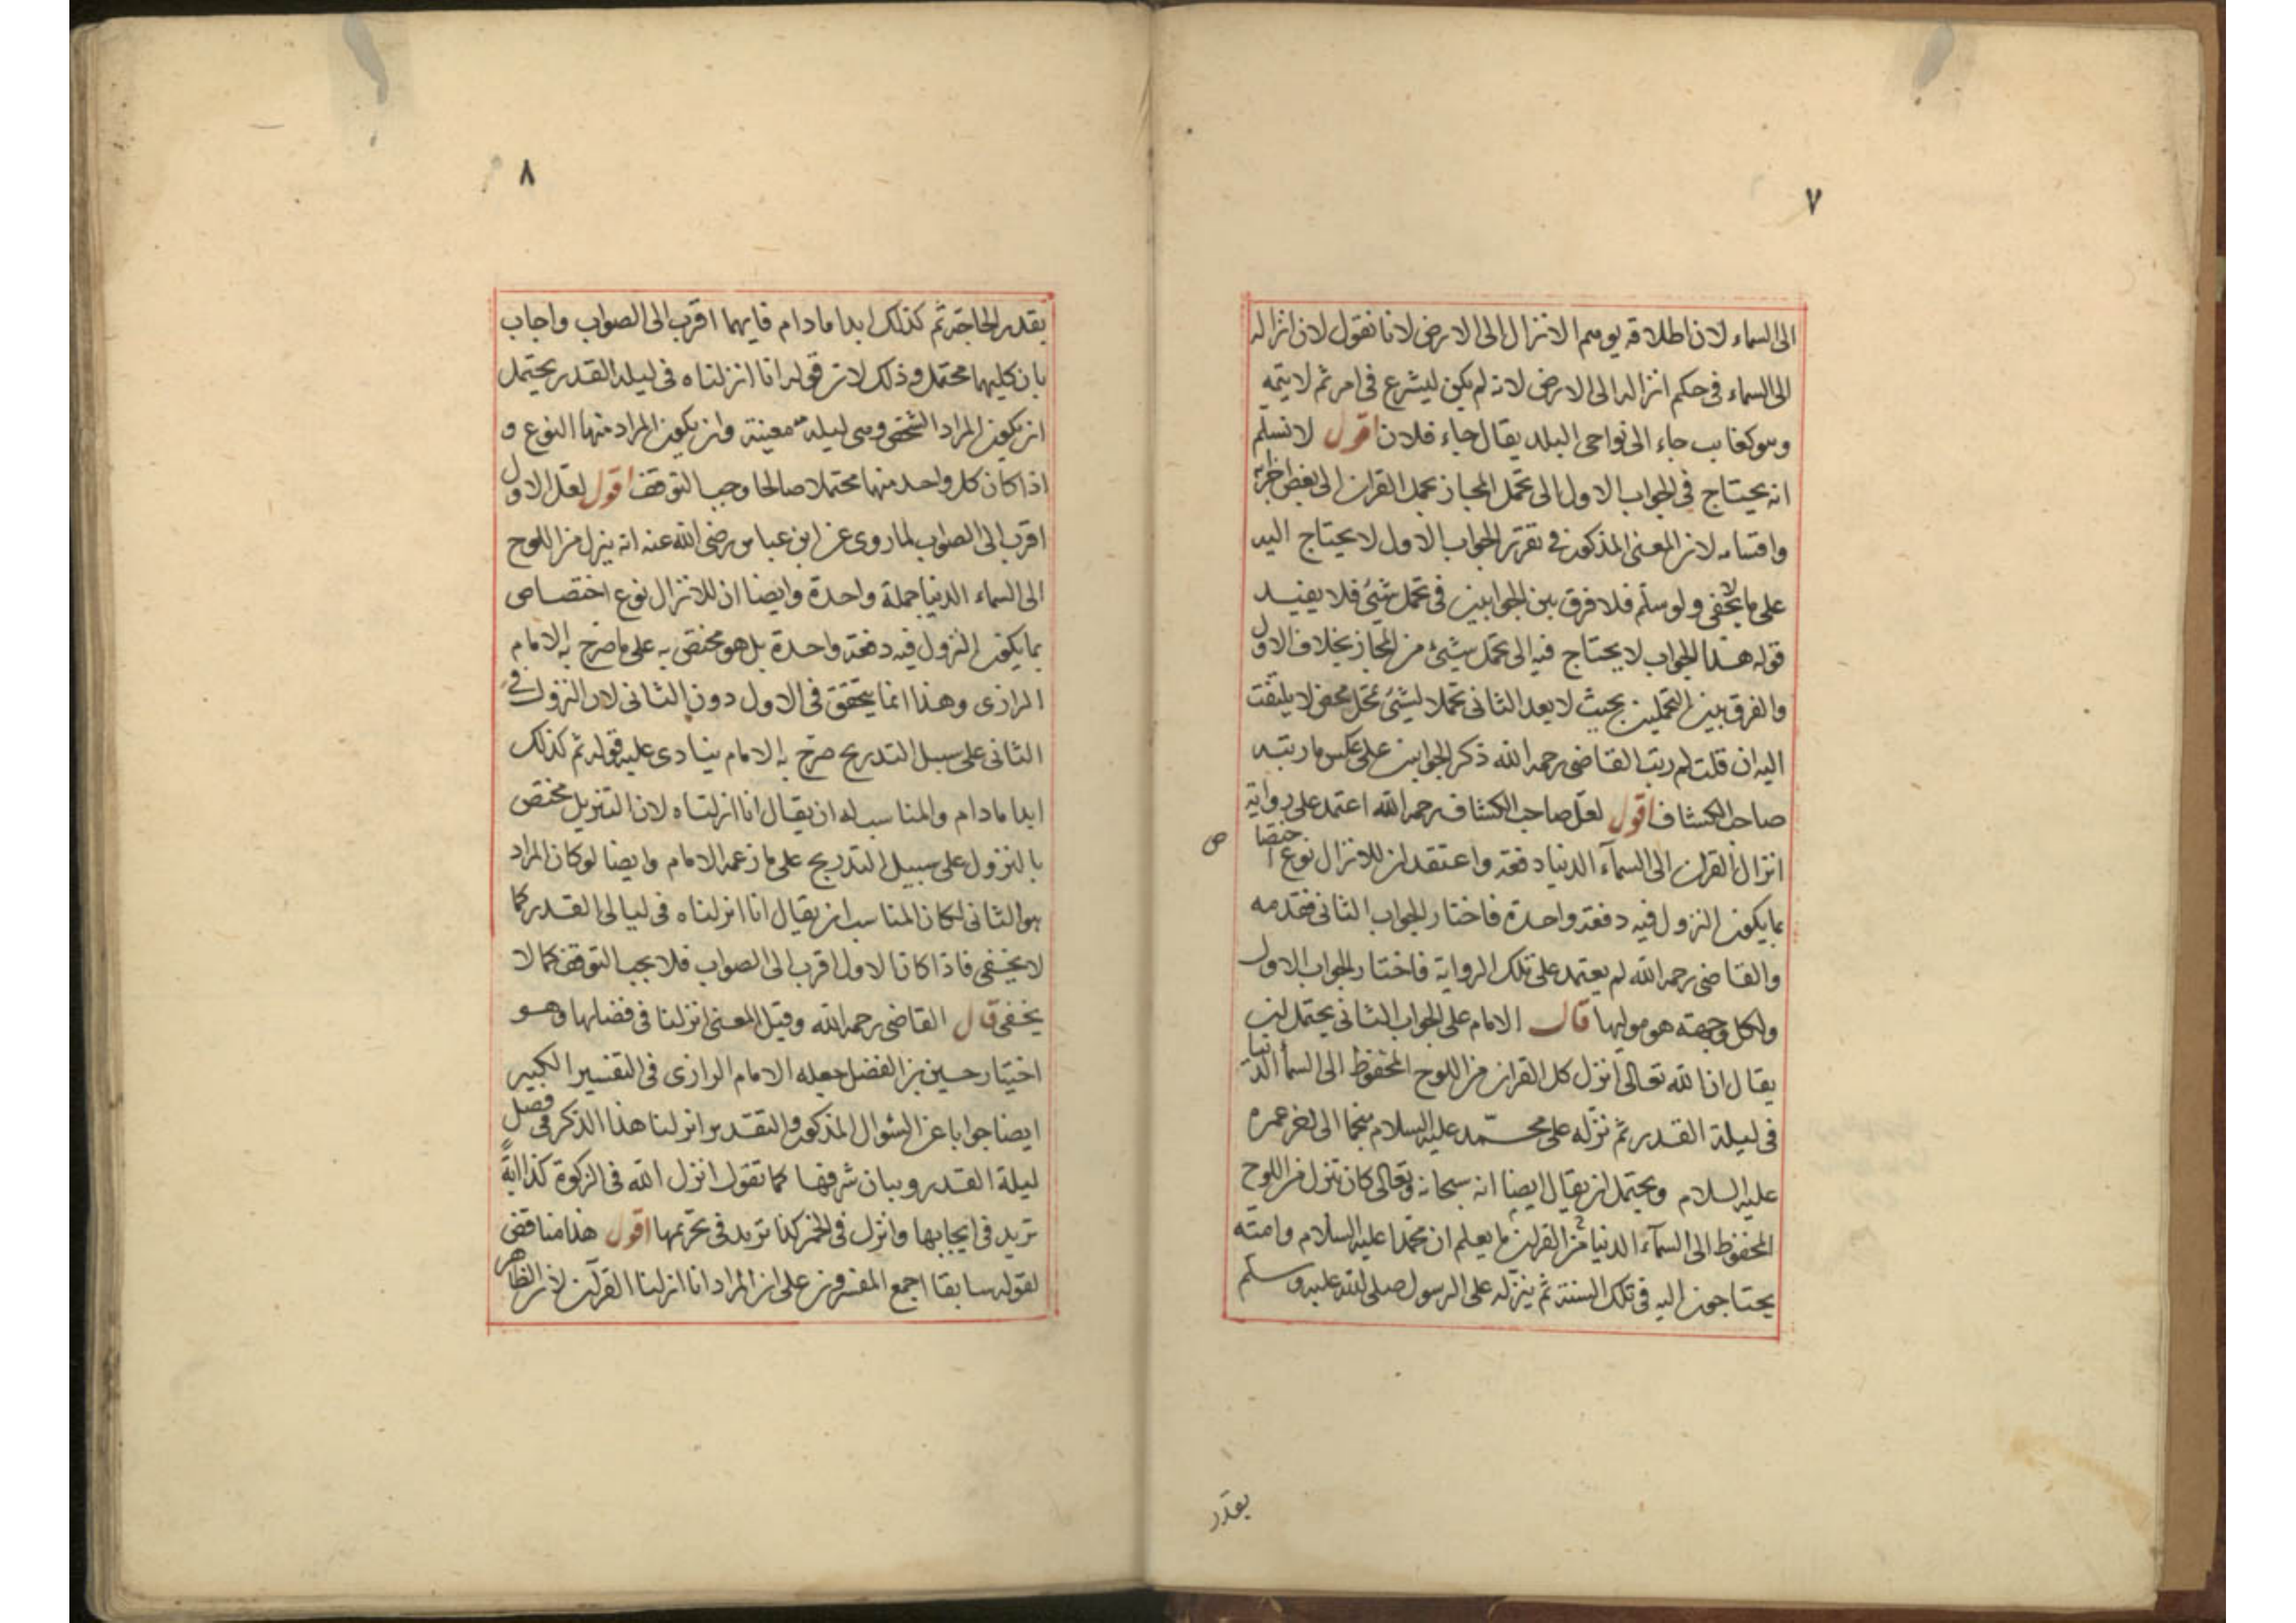 ٧
الى السماء لان اطلاقه يوهم الانزال الى الارض لانا نقول لان انزاله
الى السماء فى حكم انزاله الى الارض لانه لم يكن ليشرع فى امر ثم لا يتمه
وهو كغايب جاء الى نواحى البلد يقال جاء فلان اقول لا نسلم
انه يحتاج فى الجواب الاول الى تحمل المجاز بحمل القران الى بعض اجزائه
واقسامه لان المعنى المذكور فى تقرير الجواب الاول لا يحتاج اليه
على ما لا يخفى ولو سلم فلا فرق بين الجوابين فى تحمل شيئ فلا يفيد
قوله هذا الجواب لا يحتاج فيه الى تحمل شيئ من المجاز بخلاف الاول
والفرق بين التحملين بحيث لا يعد الثانى تحملا لشيئ تحمل محض لا يلتفت
اليه ان قلت لم رتب القاضى رحمه الله ذكر الجوابين على عكس ما رتبه
صاحب الكشاف اقول لعل صاحب الكشاف رحمه الله اعتمد على رواية
انزال القران الى السمآء الدنيا دفعة واعتقد ان للانزال نوع اختصا
ص
بما يكون النزول فيه دفعة واحدة فاختار الجواب الثانى فقدمه
والقاضى رحمه الله لم يعتمد على تلك الرواية فاختار الجواب الاول
ولكل وجهة هو موليها قال الامام على الجواب الثانى يحتمل ان
يقال ان الله تعالى انزل كل القران من اللوح المحفوظ الى السمآ الدنيا
فى ليلة القدر ثم نزله على محمّد عليه السلام منجما الى اخر عمره
عليه السلام ويحتمل ان يقال ايضا انه سبحانه وتعالى كان تنزل من اللوح
المحفوظ الى السمآء الدنيا من القران ما يعلم ان محمدا عليه السلام وامته
يحتاجون اليه فى تلك السنة ثم ينزله على الرسول صلى الله عليه وسلم
يقدر
٨
بقدر الحاجة ثم كذلك ابدا مادام فايهما اقرب الى الصواب واجاب
بان كليهما محتمل وذلك لان قوله انا انزلناه فى ليلة القدر يحتمل
ان يكون المراد الشخص وهى ليلة معينة وان يكون المراد منها النوع و
اذا كان كل واحد منهما محتملا صالحا وجب التوقف اقول لعل الاول
اقرب الى الصواب لما روى عن ابن عباس رضى الله عنه انه ينزل من اللوح
الى السماء الدنيا جملة واحدة وايضا ان للانزال نوع اختصاص
بما يكون النزول فيه دفعة واحدة بل هو مختص به على ما صرح به الامام
الرازى وهذا انما يتحقق فى الاول دون الثانى لان النزول فى
الثانى على سبيل التدريج صرح به الامام ينادى عليه قوله ثم كذلك
ابدا مادام والمناسب له ان يقال انا انزلناه لان التنزيل مختص
بالنزول على سبيل التدريج على ما زعمه الامام وايضا لو كان المراد
هو الثانى لكان المناسب ان يقال انا انزلناه فى ليالى القدر كما
لا يخفى فاذا كان الاول اقرب الى الصواب فلا يجب التوقف كما لا
يخفى قال القاضى رحمه الله وقيل المعنى انزلنا فى فضلها وهو
اختيار حسين بن الفضل جعله الامام الرازى فى التفسير الكبير
ايضا جوابا عن السؤال المذكور والتقدير انزلنا هذا الذكر فى فضل
ليلة القدر وبيان شرفها كما تقول انزل الله فى الزكوة كذا اية
تريد فى ايجابها وانزل فى الخمر كذا تريد فى تحريمها اقول هذا مناقض
لقوله سابقا اجمع المفسرون على ان المراد انا انزلنا القرآن لان الظاهر